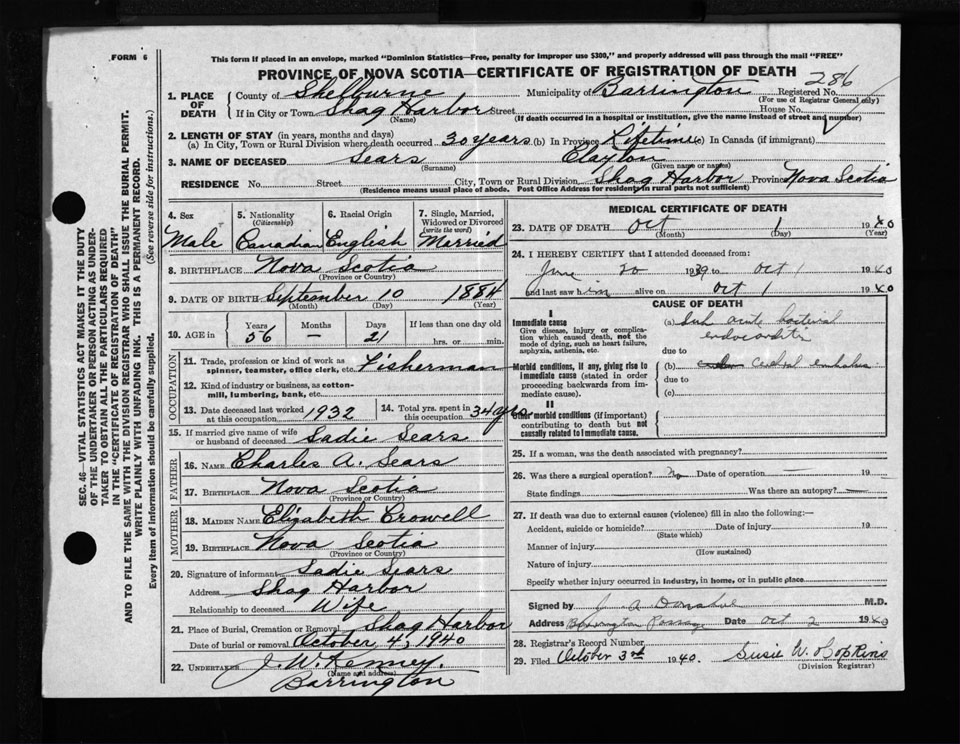 FORM 6
This form if placed in an envelope, marked "Dominion Statistics—Free, penalty for improper use $300," and properly addressed will pass through the mail "FREE"
PROVINCE OF NOVA SCOTIA—CERTIFICATE OF REGISTRATION OF DEATH
286
1. PLACE OF DEATH County of Shelburne Municipality of Barrington Registered No.
(For use of Registrar General only)
If in City or Town Shag Harbor Street House No.
(Name) (If death occurred in a hospital or institution, give the name instead of street and number)
2. LENGTH OF STAY (in years, months and days)
(a) In City, Town or Rural Division where death occurred 30 years (b) In Province Lifetime (c) In Canada (if immigrant)
3. NAME OF DECEASED Sears Clayton
(Surname) (Given name or names)
RESIDENCE No. Street City, Town or Rural Division Shag Harbor Province Nova Scotia
(Residence means usual place of abode. Post Office Address for residents in rural parts not sufficient)
4. Sex 5. Nationality (Citizenship) 6. Racial Origin 7. Single, Married, Widowed or Divorced (write the word)
Male Canadian English Married
8. BIRTHPLACE Nova Scotia
(Province or Country)
9. DATE OF BIRTH September 10 1884
(Month) (Day) (Year)
10. AGE in Years Months Days If less than one day old
56 — 21 hrs. or min.
OCCUPATION
11. Trade, profession or kind of work as spinner, teamster, office clerk, etc. Fisherman
12. Kind of industry or business, as cotton-mill, lumbering, bank, etc.
13. Date deceased last worked at this occupation 1932 14. Total yrs. spent in this occupation 34 yrs
15. If married give name of wife or husband of deceased Sadie Sears
FATHER
16. NAME Charles A. Sears
17. BIRTHPLACE Nova Scotia
(Province or Country)
MOTHER
18. MAIDEN NAME Elizabeth Crowell
19. BIRTHPLACE Nova Scotia
(Province or Country)
20. Signature of informant Sadie Sears
Address Shag Harbor
Relationship to deceased Wife
21. Place of Burial, Cremation or Removal Shag Harbor
Date of burial or removal October 4, 1940
22. UNDERTAKER J. W. Kenney.
(Name and address)
Barrington
MEDICAL CERTIFICATE OF DEATH
23. DATE OF DEATH Oct 1 1940
(Month) (Day) (Year)
24. I HEREBY CERTIFY that I attended deceased from:
June 20 1939 to Oct 1 1940
and last saw him alive on Oct 1 1940
CAUSE OF DEATH
I
Immediate cause
Give disease, injury or complication which caused death, not the mode of dying, such as heart failure, asphyxia, asthenia, etc.
(a) Sub acute bacterial
endocarditis
due to
Morbid conditions, if any, giving rise to immediate cause (stated in order proceeding backwards from immediate cause).
(b) Cerebral embolus
due to
(c)
II
Other morbid conditions (if important) contributing to death but not causally related to immediate cause.
25. If a woman, was the death associated with pregnancy?
26. Was there a surgical operation? No Date of operation — 19
State findings Was there an autopsy? —
27. If death was due to external causes (violence) fill in also the following:—
Accident, suicide or homicide? Date of injury 19
(State which)
Manner of injury
(How sustained)
Nature of injury
Specify whether injury occurred in industry, in home, or in public place
Signed by J A Donahue M.D.
Address Barrington Passage Date Oct 2 1940
28. Registrar's Record Number
29. Filed October 3rd 1940. Susie W. Hopkins
(Division Registrar)
SEC. 46—VITAL STATISTICS ACT MAKES IT THE DUTY
OF THE UNDERTAKER OR PERSON ACTING AS UNDER-
TAKER TO OBTAIN ALL THE PARTICULARS REQUIRED
IN THE "CERTIFICATE OF REGISTRATION OF DEATH"
AND TO FILE THE SAME WITH THE DIVISION REGISTRAR WHO SHALL ISSUE THE BURIAL PERMIT.
WRITE PLAINLY WITH UNFADING INK. THIS IS A PERMANENT RECORD.
Every item of information should be carefully supplied. (See reverse side for instructions.)